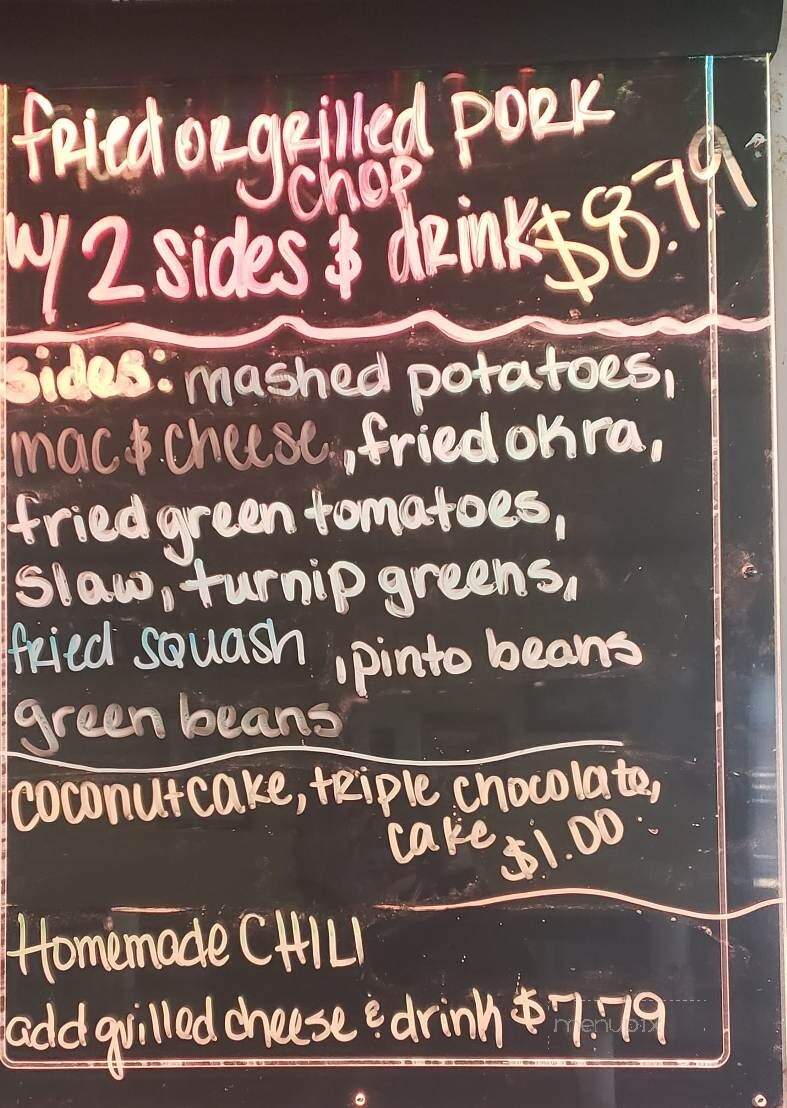 fried or grilled PORK
chop
w/ 2 sides & drink $8.79
sides: mashed potatoes,
mac & cheese, fried okra,
fried green tomatoes,
slaw, turnip greens,
fried squash, pinto beans
green beans
coconut cake, triple chocolate,
cake $1.00
Homemade CHILI
add grilled cheese & drink $7.79
menupix